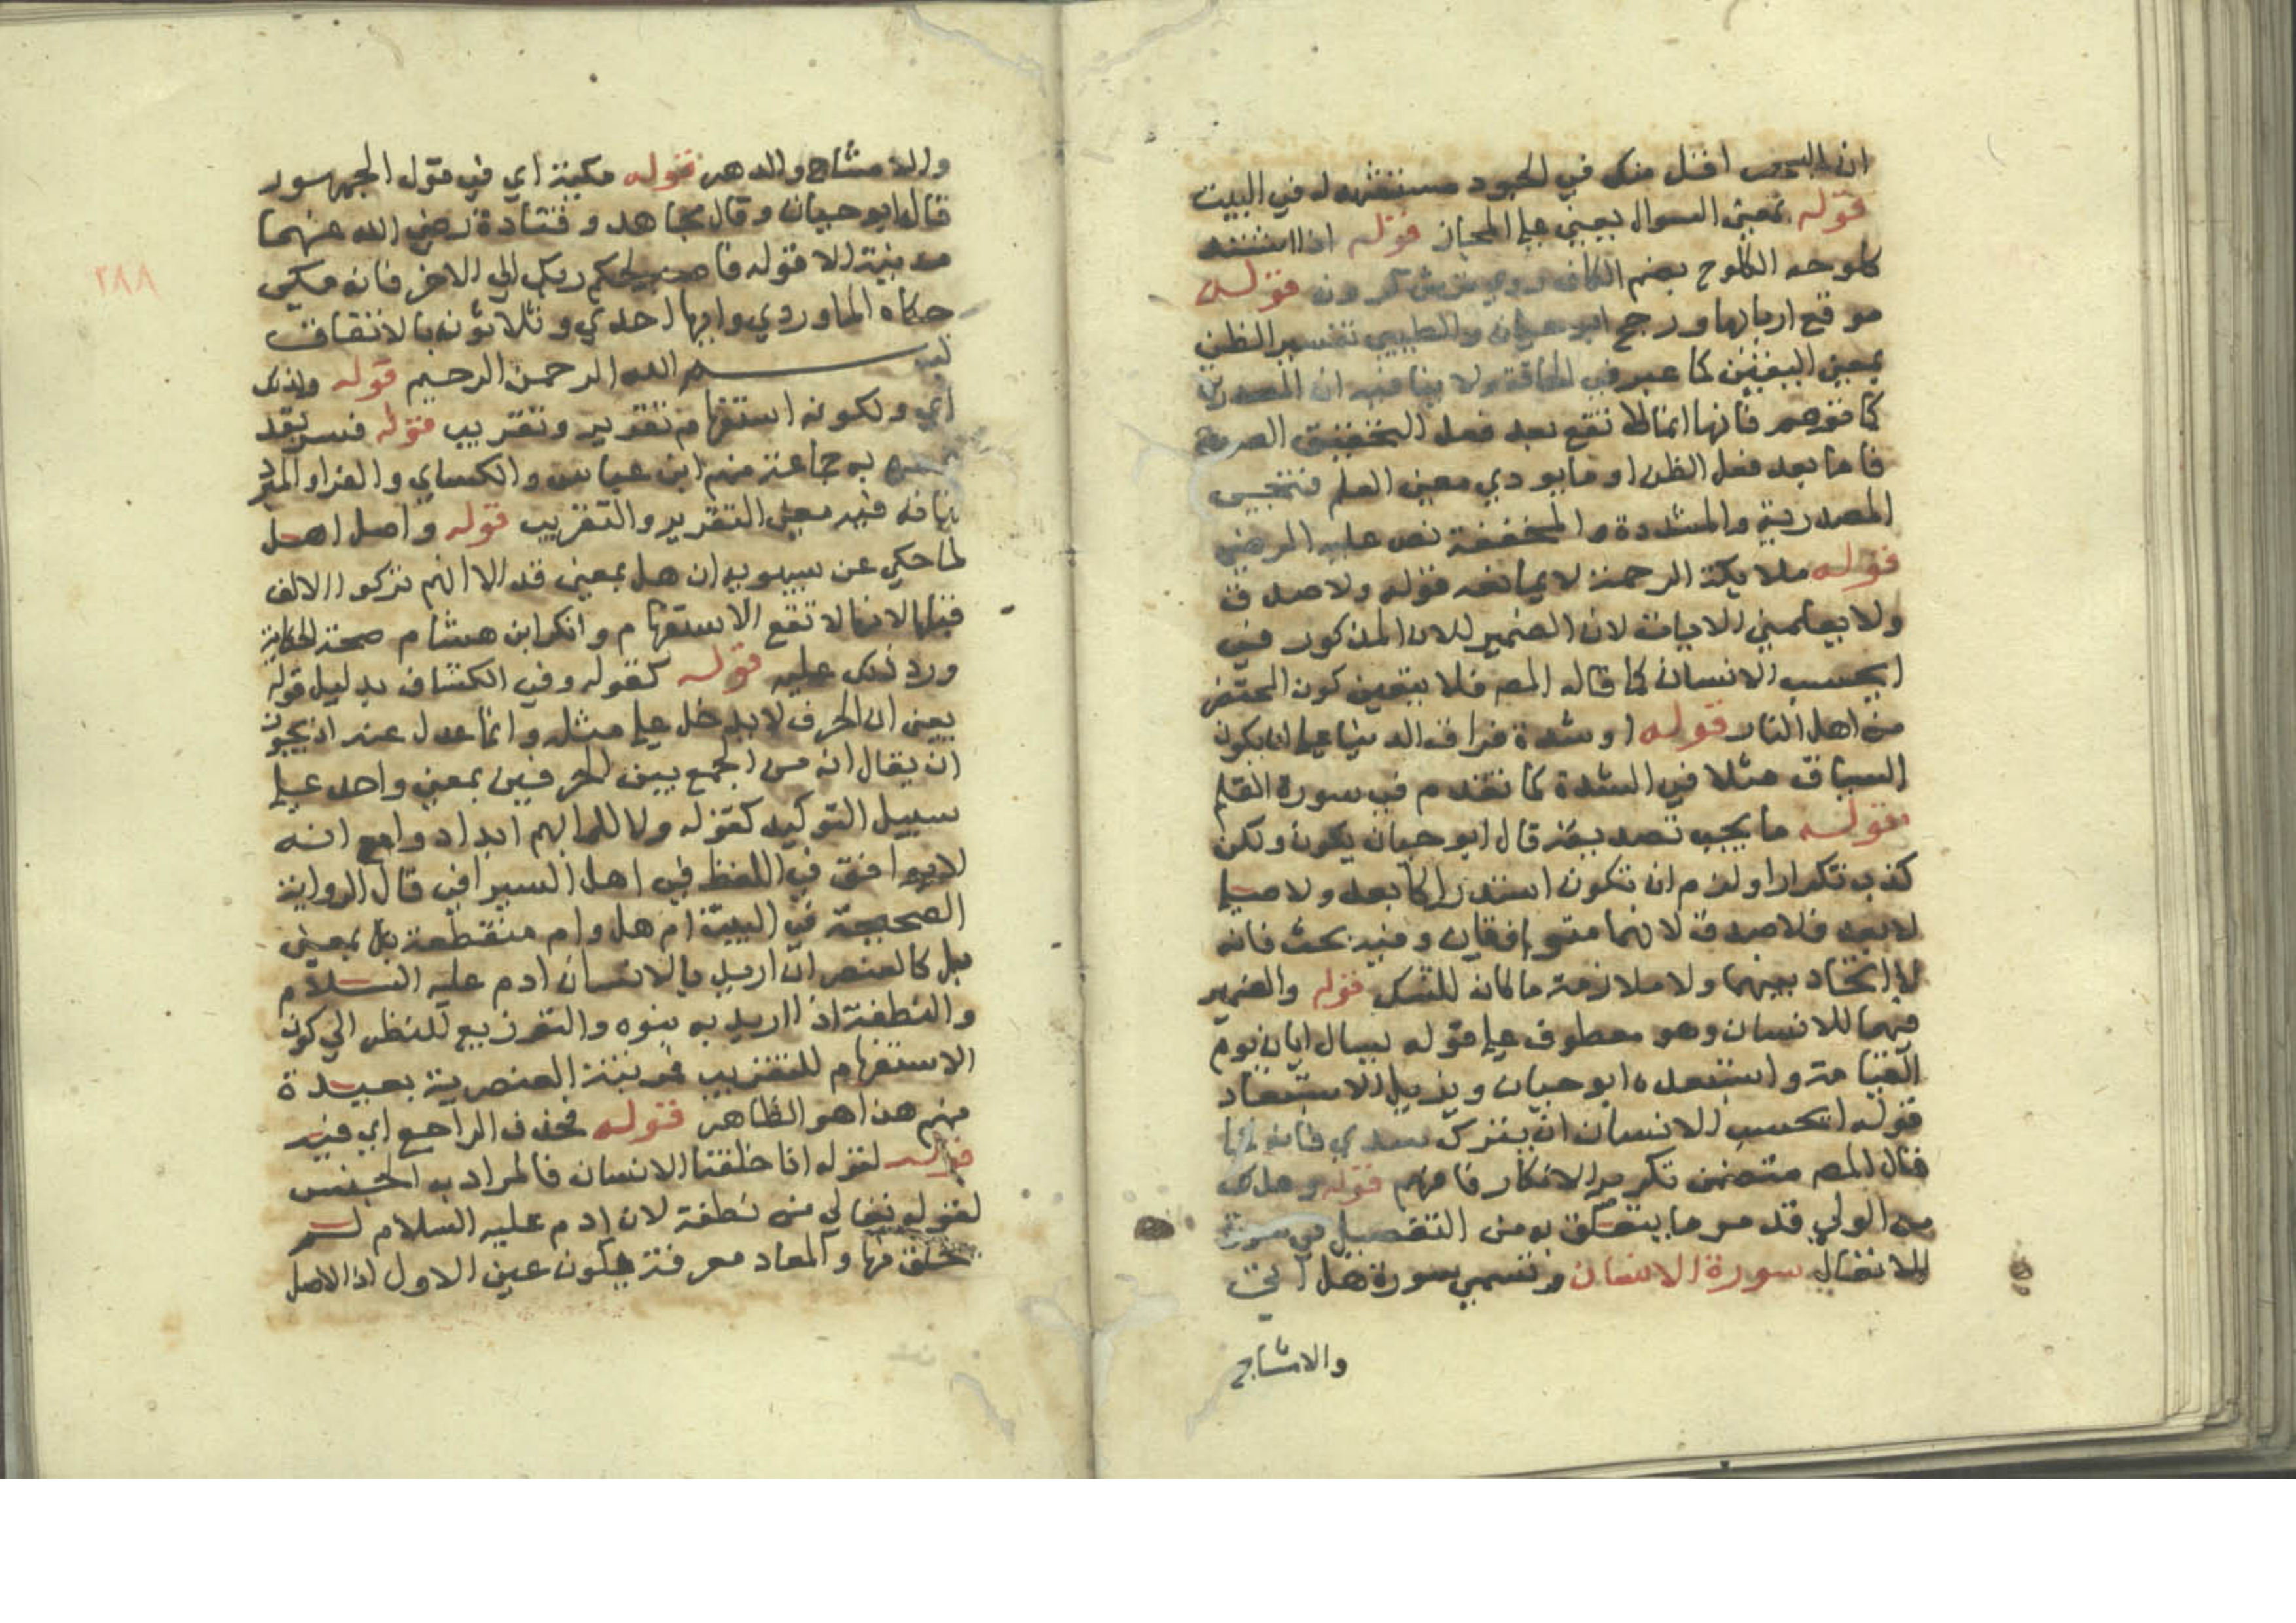 ان البحر اقل منك في الجود مستشهد له في البيت
قوله بمعنى السوال يعني على المجاز قوله اذا اشتد
كلوحه الكلوح بضم الكاف قوله
موقع اربابها ورجح ابو حيان والطيبي تفسير الظن
بمعنى اليقين كما عبر في الحاقة ولا ينافيه ان المصدرية
كما توهم فانها انما لا تقع بعد فعل التحقيق الصرف
فاما بعد فعل الظن او ما يودي معنى العلم فتجيء
المصدرية والمشددة والمخففة نص عليه الرضي
قوله ملايكة الرحمة لا يمانعه قوله ولا صدق
ولا يعلمني الايات لان الضمير للانسان المذكور في
ايحسب الانسان كما قاله المص فلا يتعين كون المحتضر
من اهل النار قوله او شدة فراق الدنيا على ان يكون
الساق مثلا في الشدة كما تقدم في سورة القلم
قوله ما يجب تصديقه قال ابو حيان يكون ولكن
كذب تكرارا ولزم ان تكون استدراكا بعد ولا صلى
لا بعد فلا صدق لانهما متوافقان وفيه بحث فانه
لا اتحاد بينهما ولا ملازمة مالمانه للشك قوله والضمير
فيهما للانسان وهو معطوف على قوله يسال ايان يوم
القيامة واستبعده ابو حيان ويزيل الاستبعاد
قوله ايحسب الانسان ان يترك سدي فانه كما
قال المص متضمن تكرير الانكار فافهم قوله وهلاك
من الولي قد مر ما يتعلق به من التفصيل في سورة
الانفال سورة الانسان وتسمى سورة هل اتى
والامشاج
والامشاج والدهر قوله مكية اي في قول الجمهور
قال ابو حيان وقال مجاهد وقتادة رضي الله عنهما
مدنية الا قوله فاصبر لحكم ربك الى الاخر فانه مكي
حكاه الماوردي وايها احدي وثلاثون بالاتفاق
بسم الله الرحمن الرحيم قوله ولذلك
اي ولكونه استفهام تقرير وتقريب قوله فسر بقد
به جماعة منهم ابن عباس والكساي والفراء والمبرد
فيه معنى التقرير والتقريب قوله واصل اهل
لما حكي عن سيبويه ان هل بمعنى قد الا انهم تركوا الالف
قبلها لانها لا تقع الاستفهام وانكر ابن هشام صحة الحكاية
ورد ذلك عليه قوله كقوله وفي الكشاف بدليل قوله
يعني ان الحرف لا يدخل على مثله وانما عدل عنه اذ يجوز
ان يقال انه من الجمع بين الحرفين بمعنى واحد على
سبيل التوكيد كقوله ولا للما بهم ابدا دوا مع انه
لا يوافق في اللفظ في اهل السيرافي قال الرواية
الصحيحة في البيت ام هل وام منقطعة بل بمعنى
بل كالعنصر ان اريد بالانسان ادم عليه السلام
والنطفة اذا اريد به بنوه والتفريع للنظر الى كون
الاستفهام للتقريب فمرتبة العنصرية بعيدة
منهم هذا هو الظاهر قوله فحذف الراجع اي فيه
قوله لقوله انا خلقنا الانسان فالمراد به الجنس
لقوله تعالى من نطفة لان ادم عليه السلام لم
يخلق منها والمعاد معرفة يكون عين الاول اذ الاصل
٢٨٨